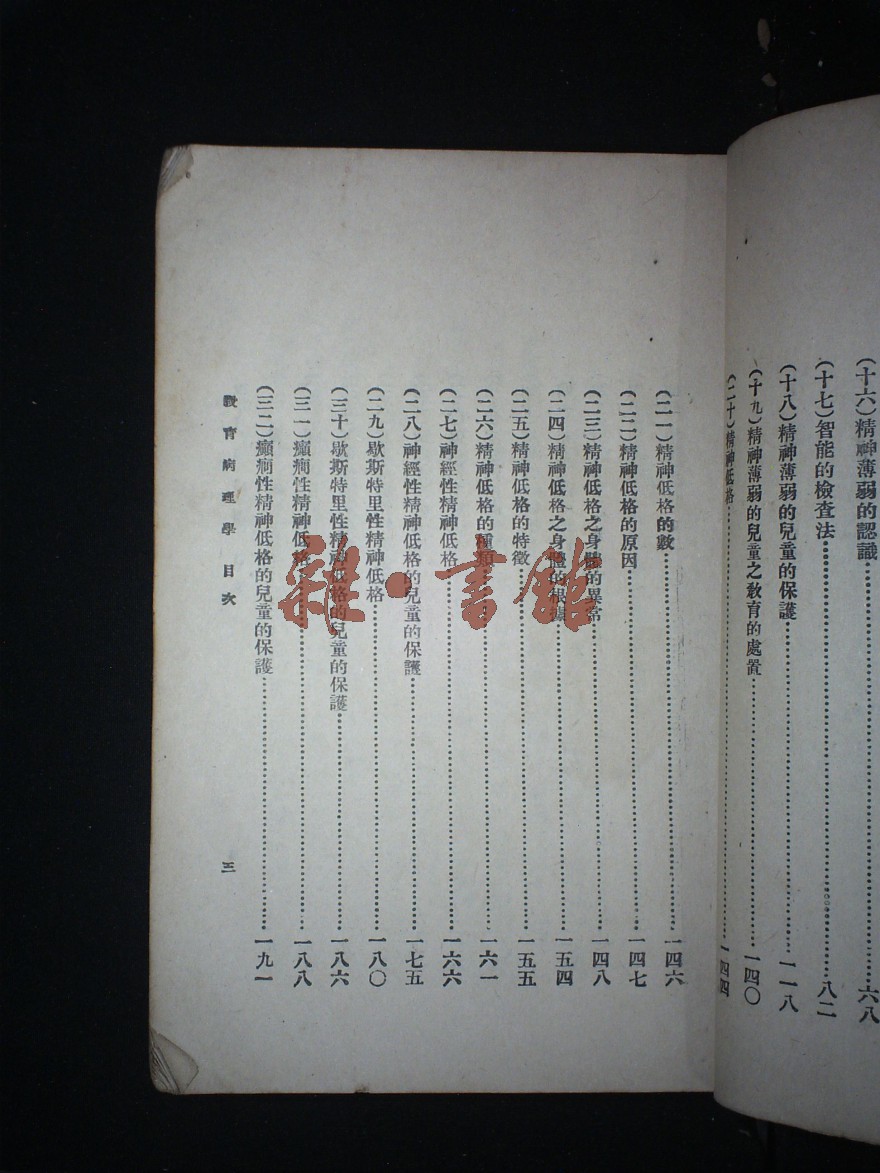 (十六)精神薄弱的認識……六八
(十七)智能的檢查法……八二
(十八)精神薄弱的兒童的保護……一一八
(十九)精神薄弱的兒童之教育的處置……一四〇
(二十)精神低格……一四四
(二一)精神低格的數……一四六
(二二)精神低格的原因……一四七
(二三)精神低格之身體的異常……一四八
(二四)精神低格之身體的根據……一五四
(二五)精神低格的特徵……一五五
(二六)精神低格的種類……一六一
(二七)神經性精神低格……一六六
(二八)神經性精神低格的兒童的保護……一七五
(二九)歇斯特里性精神低格……一八〇
(三十)歇斯特里性精神低格的兒童的保護……一八六
(三一)癲癇性精神低格……一八八
(三二)癲癇性精神低格的兒童的保護……一九一
教育病理學 目次
三
雜·書館